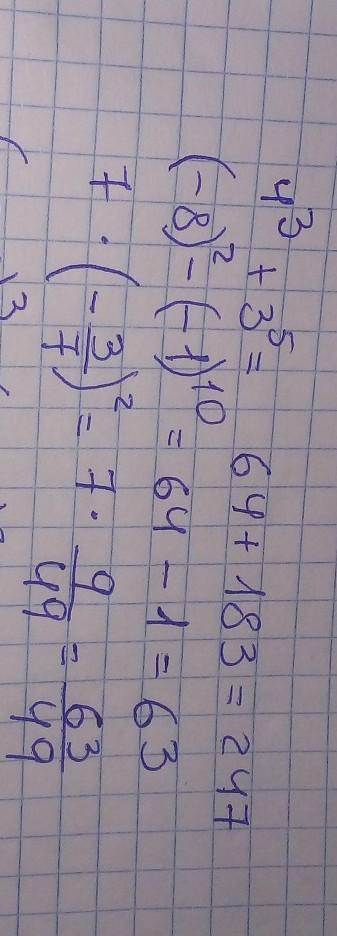 4³ + 3⁵ = 64 + 183 = 247
(-8)² - (-1)¹⁰ = 64 - 1 = 63
7 · (-3/7)² = 7 · 9/49 = 63/49